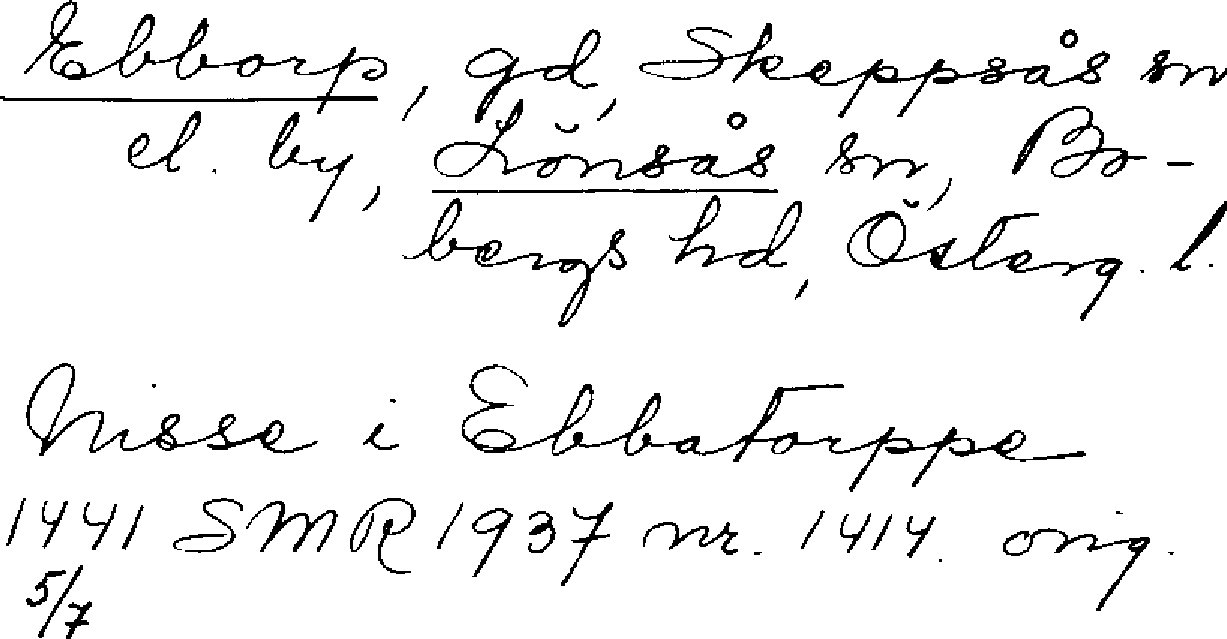 Ebborp, gd, Skeppsås sn
el. by, Lönsås sn, Bo-
bergs hd, Österg. l.
Nisse i Ebbatorppe
1441 SMR 1937 nr. 1414. orig.
5/7